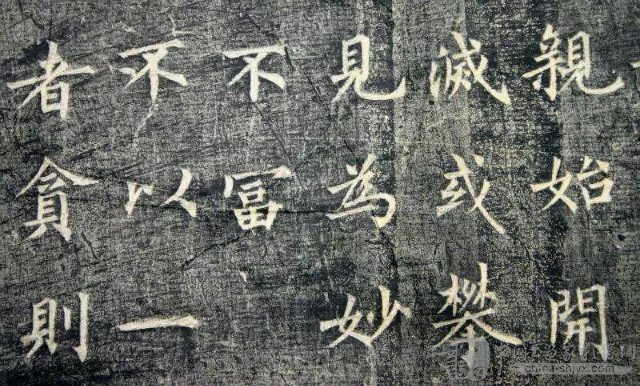 親始開
滅或樊
見為妙
不冨
不以一
者貪則